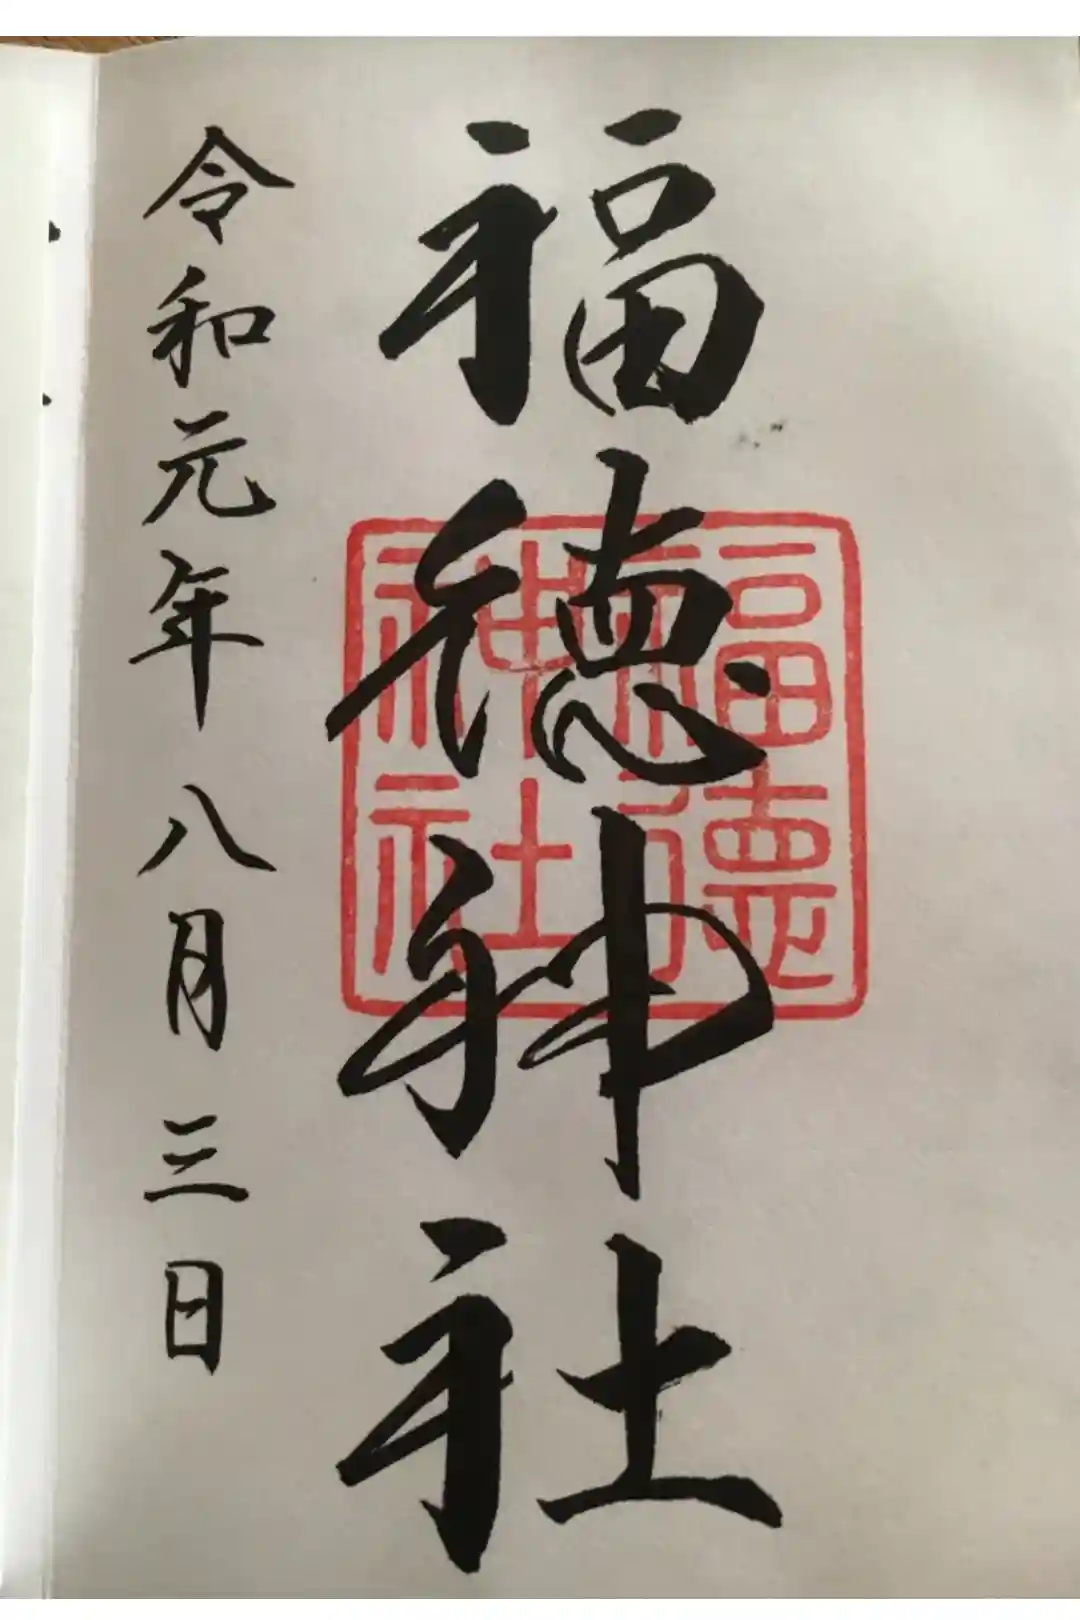 福徳神社
福德
神社
令和元年八月三日